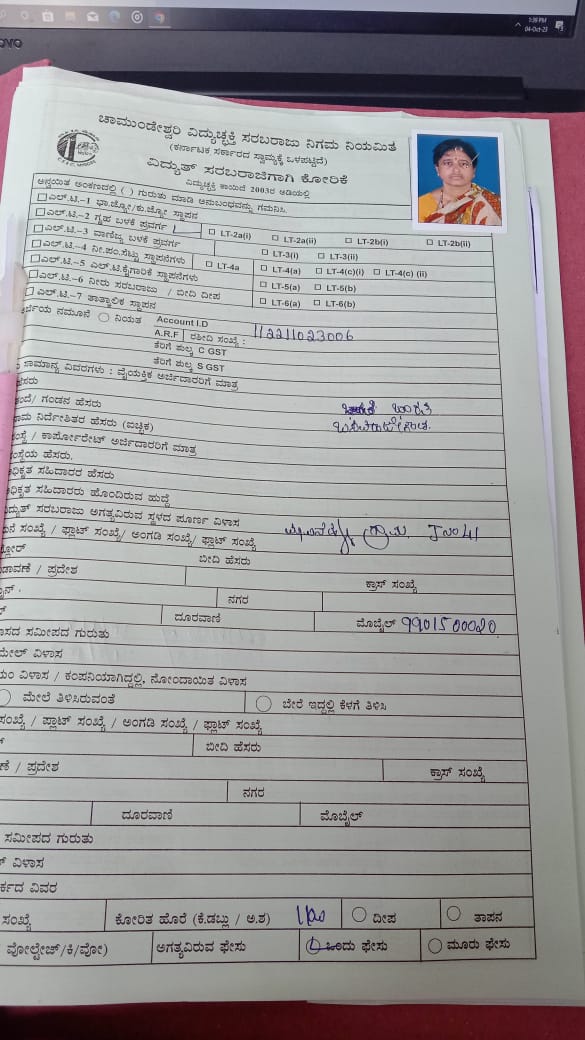 1:39 PM
04-Oct-23
ಚಾಮುಂಡೇಶ್ವರಿ ವಿದ್ಯುಚ್ಛಕ್ತಿ ಸರಬರಾಜು ನಿಗಮ ನಿಯಮಿತ
(ಕರ್ನಾಟಕ ಸರ್ಕಾರದ ಸ್ವಾಮ್ಯಕ್ಕೆ ಒಳಪಟ್ಟಿದೆ)
ವಿದ್ಯುತ್ ಸರಬರಾಜಿಗಾಗಿ ಕೋರಿಕೆ
ವಿದ್ಯುಚ್ಛಕ್ತಿ ಕಾಯಿದೆ 2003ರ ಅಡಿಯಲ್ಲಿ
ಅನ್ವಯಿತ ಅಂಕಣದಲ್ಲಿ ( ) ಗುರುತು ಮಾಡಿ ಅನುಬಂಧವನ್ನು ಗಮನಿಸಿ.
ಎಲ್.ಟಿ.–1 ಭಾ.ಜ್ಯೋ/ಕು.ಜ್ಯೋ ಸ್ಥಾಪನ
ಎಲ್.ಟಿ.–2 ಗೃಹ ಬಳಕೆ ಪ್ರವರ್ಗ LT-2a(i) LT-2a(ii) LT-2b(i) LT-2b(ii)
ಎಲ್.ಟಿ.–3 ವಾಣಿಜ್ಯ ಬಳಕೆ ಪ್ರವರ್ಗ LT-3(i) LT-3(ii)
ಎಲ್.ಟಿ.–4 ನೀ.ಪಂ.ಸೆಟ್ಟು ಸ್ಥಾಪನೆಗಳು LT-4a LT-4(a) LT-4(c)(i) LT-4(c) (ii)
ಎಲ್.ಟಿ.–5 ಎಲ್.ಟಿ.ಕೈಗಾರಿಕೆ ಸ್ಥಾಪನೆಗಳು LT-5(a) LT-5(b)
ಎಲ್.ಟಿ.–6 ನೀರು ಸರಬರಾಜು / ಬೀದಿ ದೀಪ LT-6(a) LT-6(b)
ಎಲ್.ಟಿ.–7 ತಾತ್ಕಾಲಿಕ ಸ್ಥಾಪನ
ನಮೂನೆ ನಿಯತ Account I.D
A.R.F ರಶೀದಿ ಸಂಖ್ಯೆ : 112211023006
ತೆರಿಗೆ ಶುಲ್ಕ C GST
ತೆರಿಗೆ ಶುಲ್ಕ S GST
ಸಾಮಾನ್ಯ ವಿವರಗಳು : ವೈಯಕ್ತಿಕ ಅರ್ಜಿದಾರರಿಗೆ ಮಾತ್ರ
ಗಂಡನ ಹೆಸರು
ನಿರ್ದೇಶಿತರ ಹೆಸರು (ಐಚ್ಛಿಕ)
/ ಕಾರ್ಪೊರೇಟ್ ಅರ್ಜಿದಾರರಿಗೆ ಮಾತ್ರ
ಹೆಸರು.
ಸಹಿದಾರರ ಹೆಸರು
ಸಹಿದಾರರು ಹೊಂದಿರುವ ಹುದ್ದೆ
ಸರಬರಾಜು ಅಗತ್ಯವಿರುವ ಸ್ಥಳದ ಪೂರ್ಣ ವಿಳಾಸ
ಸಂಖ್ಯೆ / ಫ್ಲಾಟ್ ಸಂಖ್ಯೆ/ ಅಂಗಡಿ ಸಂಖ್ಯೆ/ ಫ್ಲಾಟ್ ಸಂಖ್ಯೆ
ಬೀದಿ ಹೆಸರು
/ ಪ್ರದೇಶ ಕ್ರಾಸ್ ಸಂಖ್ಯೆ
ನಗರ
ದೂರವಾಣಿ ಮೊಬೈಲ್
ಸಮೀಪದ ಗುರುತು
ವಿಳಾಸ
ವಿಳಾಸ / ಕಂಪನಿಯಾಗಿದ್ದಲ್ಲಿ, ನೋಂದಾಯಿತ ವಿಳಾಸ
ಮೇಲೆ ತಿಳಿಸಿರುವಂತೆ ಬೇರೆ ಇದ್ದಲ್ಲಿ ಕೆಳಗೆ ತಿಳಿಸಿ
ಸಂಖ್ಯೆ / ಪ್ಲಾಟ್ ಸಂಖ್ಯೆ / ಅಂಗಡಿ ಸಂಖ್ಯೆ / ಫ್ಲಾಟ್ ಸಂಖ್ಯೆ
ಬೀದಿ ಹೆಸರು
/ ಪ್ರದೇಶ ಕ್ರಾಸ್ ಸಂಖ್ಯೆ
ನಗರ
ದೂರವಾಣಿ ಮೊಬೈಲ್
ಸಮೀಪದ ಗುರುತು
ವಿಳಾಸ
ವಿವರ
ಸಂಖ್ಯೆ ಕೋರಿತ ಹೊರೆ (ಕೆ.ಡಬ್ಲು / ಅ.ಶ) ದೀಪ ತಾಪನ
ವೋಲ್ಟೇಜ್/ಕಿ/ವೋ) ಅಗತ್ಯವಿರುವ ಫೇಸು ಒಂದು ಫೇಸು ಮೂರು ಫೇಸು